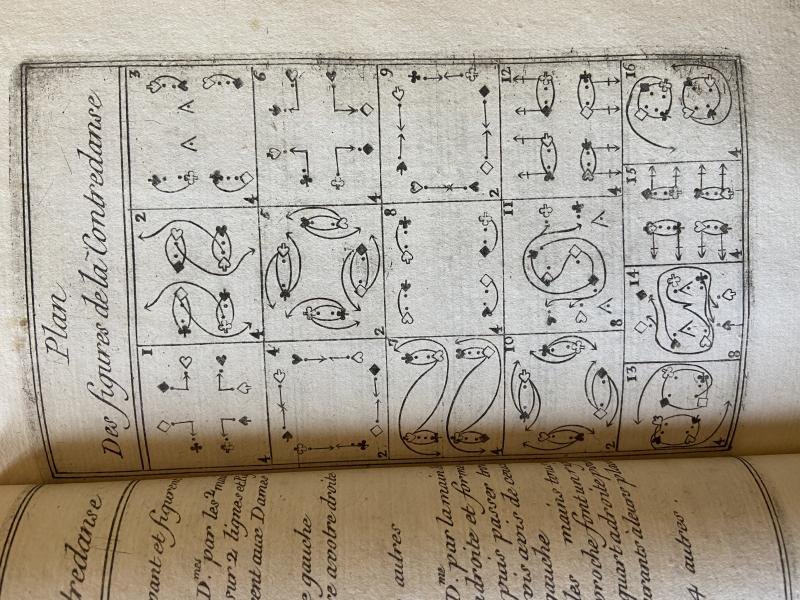 Plan
Des figures de la Contredanse
1
4
2
4
3
4
4
2
5
2
6
4
7
4
8
4
9
2
10
2
11
8
12
4
13
4
14
8
15
4
16
4
tredanse
nant et figurons
D.mes par les 2
sur 2 lignes et
ent aux Dames
e gauche
re a votre droite
autres
D.me par la main
droite et form
puis passer
vis a vis de
gauche
les mains
proche font un
quart a droite
urants à leurs places
4 autres